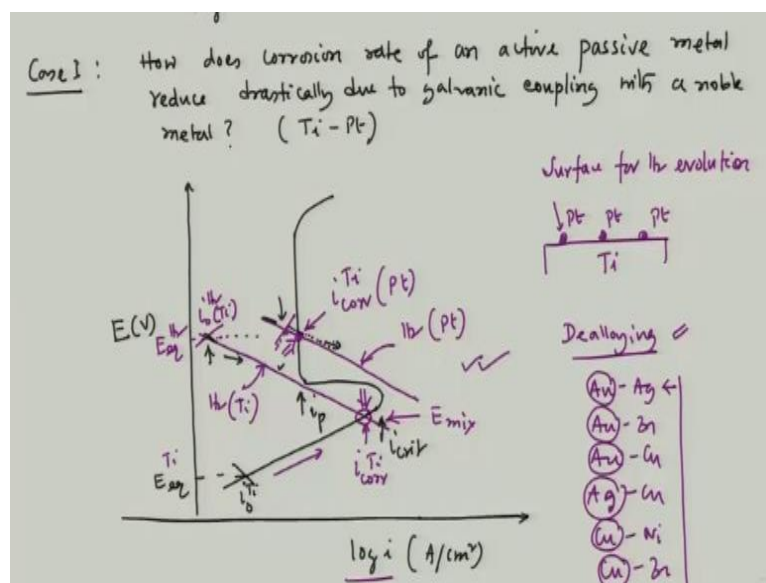 Case I : How does corrosion rate of an active passive metal
reduce drastically due to galvanic coupling with a noble
metal? (Ti-Pt)
Surface for H₂ evolution
Pt Pt Pt
Ti
E(V)
i₀ᴴ²(Ti)
Eeqᴴ²
iᵀⁱcorr (Pt)
H₂ (Pt)
H₂(Ti)
ip
Emix
icrit
iᵀⁱcorr
Ti
Eeq
i₀ᵀⁱ
log i (A/cm²)
Dealloying
Au-Ag
Au-Zn
Au-Cu
Ag-Cu
Cu-Ni
Cu-Zn